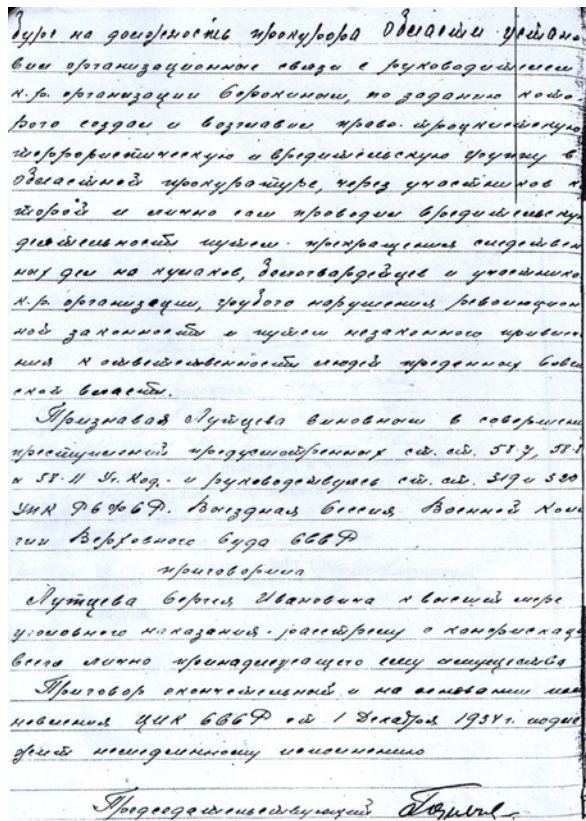 буре на должность прокурора Области устано
вил организационные связи с руководителем
к.р. организации Сорокиным, по заданию кото
рого создал и возглавил право-троцкистскую
террористическую и вредительскую группу в
Областной прокуратуре, через участников к
торой и лично сам проводил вредительскую
деятельность путем прекращения следствен
ных дел на кулаков, белогвардейцев и участнико
к.р. организации, грубого нарушения революцион
ной законности и путем незаконного привлече
ния к ответственности людей преданных Совет
ской власти.
Признавая Лутцева виновным в совершени
преступлений предусмотренных ст. ст. 58-7, 58-8
и 58-11 Уг. Код. и руководствуясь ст. ст. 319 и 320
УПК РСФСР. Выездная Сессия Военной Колле
гии Верховного Суда СССР
приговорила
Лутцева Сергея Ивановича к высшей мере
уголовного наказания - расстрелу с конфискаци
всего лично принадлежащего ему имущества
Приговор окончательный и на основании поста
новления ЦИК СССР от 1 Декабря 1934 г. подле
жит немедленному исполнению
Председательствующий